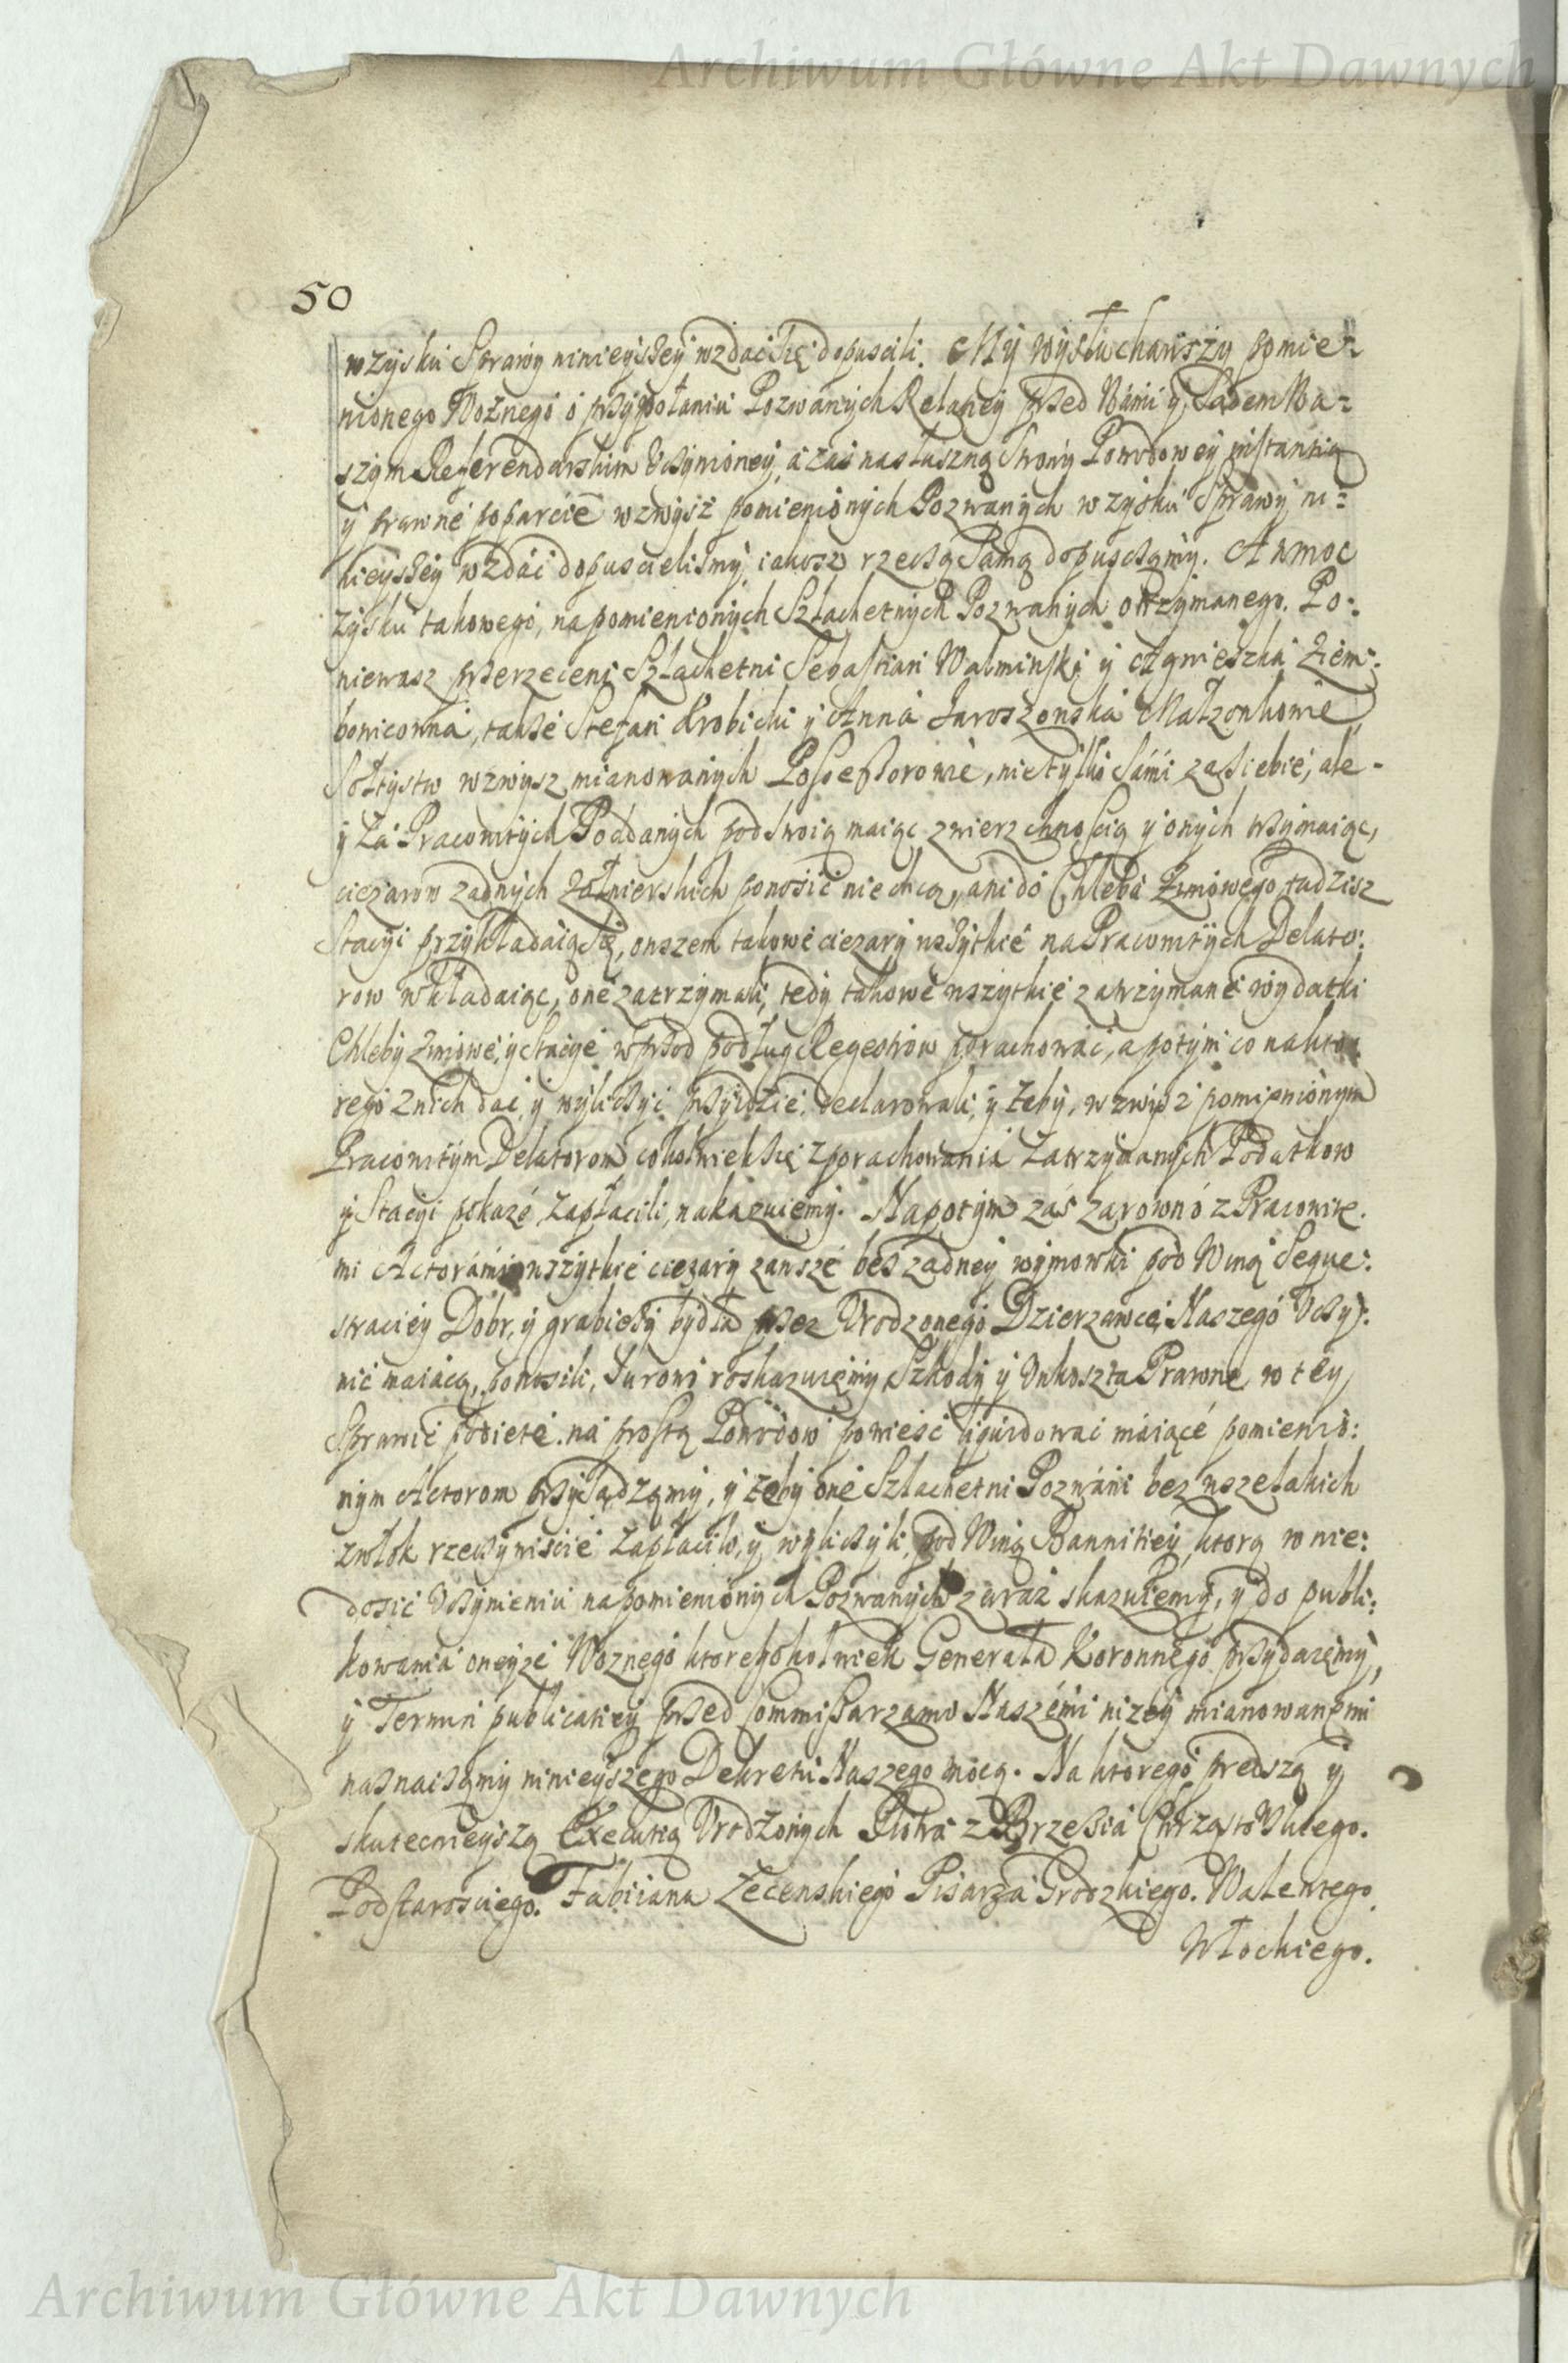 Archiwum Główne Akt Dawnych
50
w zysku Sprawy ninieyszey wzdać się dopuscili. My wysłuchawszy pomie=
nionego Woznego o przypołaniu Pozwanych Relaciey przed Nami y Sądem Na=
szym Referendarskim Uczynioney, a zaś na słuszną Strony Powodowey instantią
y prawne poparcie wzwysz pomienionych Pozwanych w zysku Sprawy ni=
nieyszey wzdać dopuscielismy, iakosz rzeczą Samą dopusczamy. A w moc
Zysku takowego, na pomienionych Szlachetnych Pozwanych otrzymanego. Po=
niewasz przerzeceni Szlachetni Sebastian Walminski y Agnieszka Ziem=
bowicowna, także Stefan Krobicki y Anna Jaroszonska Małzonkowie
Sołtystw wzwysz mianowanych Possessorowie, nie tylko Sami za siebie, ale
y za Pracowitych Poddanych pod swoią maiąc zwierzchnoscią y onych wyimaiąc,
ciezarow zadnych Zołnierskich ponosic nie chcą, ani do Chleba Zimowego tudzisz
Stacyi przykładaią się, owszem takowe ciezary wszytkie na Pracowitych Delato=
row wkładaiąc, one zatrzymali, tedy takowe wszytkie zatrzymane wydatki
Chleby Zimowe, y Stacye wprzod podług Regestrow porachowac, a potym co na kto=
rego z nich dac, y wyliczyc przydzie, declarowali, y zeby, wzwysz pomienionym
Pracowitym Delatorom cokolwiek się z porachowania Zatrzymanych Podatkow
y Stacyi pokaze zapłacili, nakazuiemy. Napotym zas zarowno z Pracowite=
mi Actorami wszytkie ciezary zawsze bes zadney wymowki pod Winą Seque=
straciey Dobr, y grabiezy bydła przez Urodzonego Dzierzawcę Naszego Uczy=
nic maiącą, ponosili, Surowo roskazuiemy Szkody y Unkoszta Prawne w tey
Sprawie podięte na prostą Powodow powiesc liquidowac maiące pomienio=
nym Actorom przysądzamy, y zeby one Szlachetni Pozwani bez wszelakich
zwłok rzeczywiscie zapłacili, y wyliczyli, pod Winą Bannitiey, ktorą w nie=
dosic Uczynieniu na pomienionych Pozwanych zaraz skazuiemy, y do publi=
kowania oneyze Woznego ktoregokolwiek Generała Koronnego przydaiemy,
y Termin publicatiey przed Commissarzami Naszemi nizey mianowanemi
naznaczamy ninieyszego Dekretu Naszego mocą. Na ktorego predszą y
skutecznieyszą Executią Urodzonych Piotra z Brzezia Chrząstowskiego.
Podstarosciego. Fabiiana Zecenskiego Pisarza Grodzkiego. Walentego
Włockiego.
Archiwum Główne Akt Dawnych